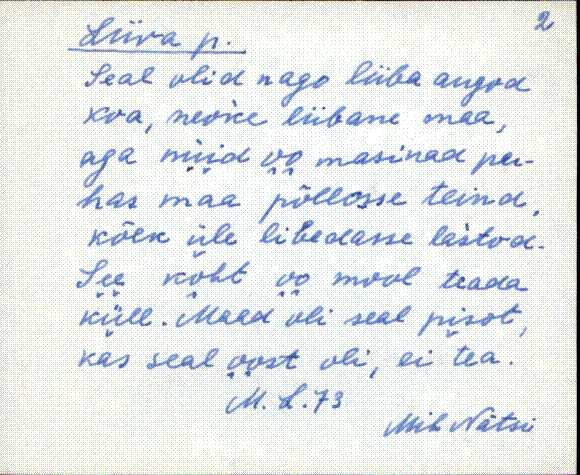 2
Liiva p.
Seal olid nago liiba augod
koa, neoke liibane maa,
aga nüid oo masinad per-
has maa põllosse teind,
kõek üle libedasse lastod.
See koht oo mool teada
küll. Maad oli seal pisot,
kas seal oost oli, ei tea.
M. L. 73
Mih Nätsi